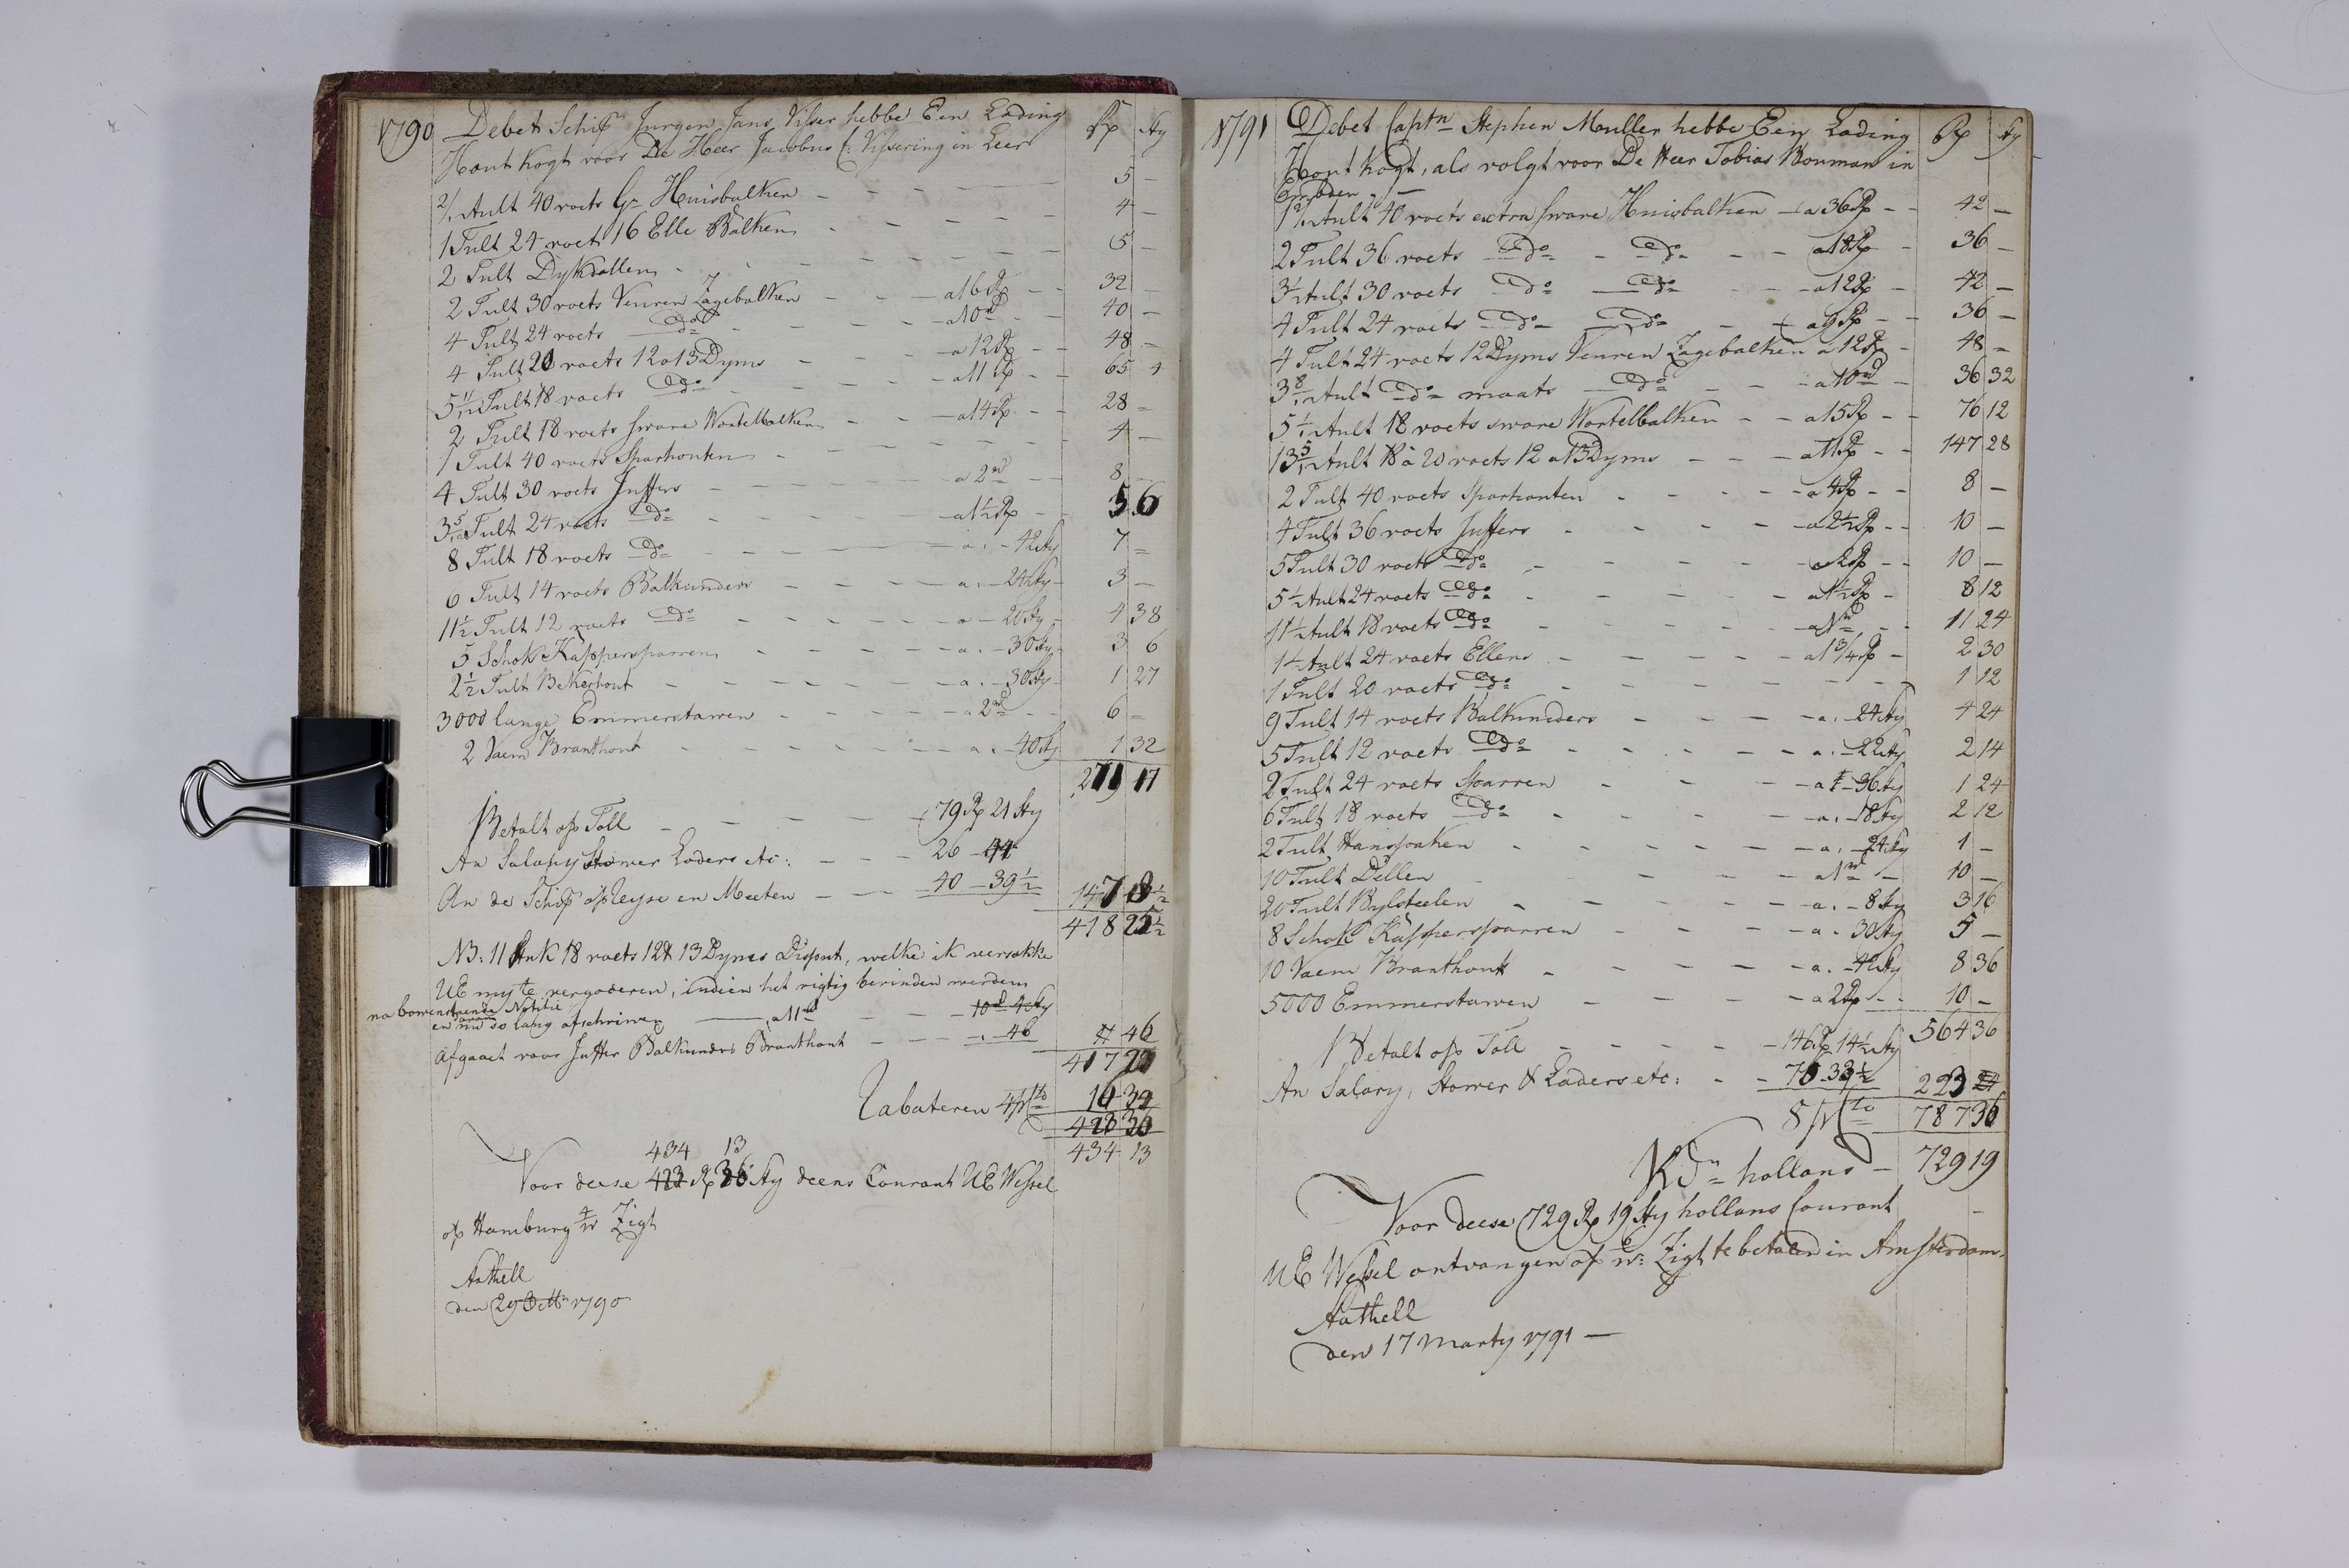 1790 Debet Schipr Jurgen Jans Visser hebbe Een Lading Rx sty
Hout kogt voor De Heer Jacobus C: Vissering in Leer
Tult 40 voets Gr Huisbalken - 5 -
1 Tult 24 voets 16 Elle Balken - 4 -
2 Tult Dykdallen - 5 -
2 Tult 30 voets Veuren Zagebalken - a 16 Rx - 32 -
4 Tult 24 voets do - a 10 rd - 40 -
4 Tult 20 voets 12 a 13 Dyms - a 12 Rx - 48 -
5 11/12 Tult 18 voets do - a 11 Rx - 65 4
2 Tult 18 voets sware Wortelbalken - a 14 Rx - 28 -
1 Tult 40 voets Sparhouten - 4 -
4 Tult 30 voets Juffers - a 2 rd - 8 -
3 5/12 Tult 24 voets do - a 1½ Rx - 5 6
8 Tult 18 voets do - a . - 42 sty 7 -
6 Tult 14 voets Balkunders - a . - 24 sty 3 -
11½ Tult 12 voets do - a - 20 sty - 4 38
5 Schok Kappersparren - a . - 30 sty - 3 6
2½ Tult Bekerhout - a . - 30 sty - 1 27
3000 lange Emmerstawen - a 2 rd - 6 -
2 Vaem Branthout - a . - 40 sty 1 32
271 17
Betalt op Toll - 79 Rx 21 sty
An Salary Stower Laders etc: - 26 - 44
An de Schipr op Reyse en Meeten - 40 - 39½ 147 8½
418 25½
NB: 11 Stuk 18 voets 12 a 13 Dyms Disput, welke ik versokke
UE my te vergoderen, indien het rigtig bevinden werden
na bowenstaende Notitie
en nu so lang afschriwen - a 11 rd - 10 rd 4 sty
Afgaaet voor Juffer Balkunders Branthout - . - 46 46
417
Rabateren 4 pr Cto 16 32
423 36
434 13
434 13
Voor deese 423 Rx 36 sty deens Courant UE Wessel
op Hamburg 4/w Zigt
Aathell
den 29 Octbr 1790
1791 Debet Captn Stephen Muller hebbe Een Lading Rx sty
Hout kogt, als volgt voor De Heer Tobias Bouman in
Embden. -
Tult 40 voets extra sware Huisbalken - a 36 Rx - 42 -
2 Tult 36 voets do - do - a 18 Rx - 36 -
3½ Tult 30 voets do do - a 12 Rx - 42 -
4 Tult 24 voets do do - a 9 Rx - 36 -
4 Tult 24 voets 12 Dyms Veuren Zagebalken a 12 Rx - 48 -
3 8/12 Tult do maats do - a 10 rd - 36 32
5 1/12 Tult 18 voets sware Wortelbalken - a 15 Rx - 76 12
13 5/12 Tult 18 à 20 voets 12 a 13 Dyms - a 11 Rx - 147 28
2 Tult 40 voets Sparhouten - a 4 Rx - 8 -
4 Tult 36 voets Juffers - a 2½ Rx - 10 -
5 Tult 30 voets do - a 2 Rx - 10 -
5½ Tult 24 voets do - a 1½ Rx - 8 12
11½ Tult 18 voets do - a 1 rd - 11 24
1½ Tult 24 voets Ellens - a 1¾ Rx - 2 30
1 Tult 20 voets do - 1 12
9 Tult 14 voets Balkunders - a . 24 sty 4 24
5 Tult 12 voets do - a . - 22 sty 2 14
2 Tult 24 voets Sparren - a - 36 sty 1 24
6 Tult 18 voets do - a . - 18 sty 2 12
2 Tult Hanspaken - a . - 24 sty 1 -
10 Tult Dellen - a 1 rd - 10 -
20 Tult Bylsteelen - a . - 8 sty 3 16
8 Schok Kappersparren - a - 30 sty 5 -
10 Vaem Branthout - a . - 42 sty 8 36
5000 Emmerstawen - a 2 Rx - 10 -
564 36
Betalt op Toll - 146 Rx 14½ sty
An Salary, Stower & Laders etc: - 76 33½ 223
8 pr Cto 787 36
Rdr hollans - 729 19
Voor deese 729 Rx 19 sty hollans Courant
UE Wessel ontvangen op 6/w: Zigt te betalen in Amsterdam.
Aathell
den 17 Marty 1791 -